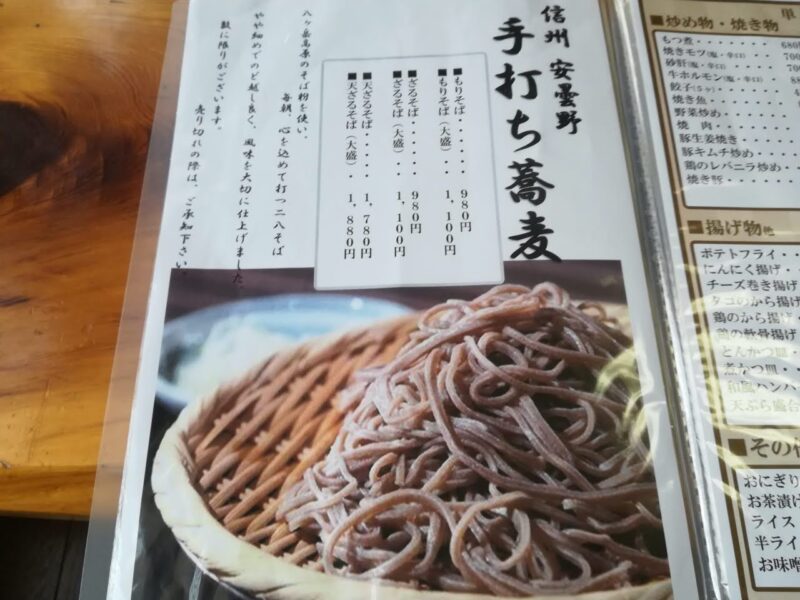 信州 安曇野
手打ち蕎麦
■もりそば・・・・・ 980円
■もりそば（大盛）・ 1,100円
■ざるそば・・・・・ 980円
■ざるそば（大盛）・ 1,100円
■天ざるそば・・・・ 1,780円
■天ざるそば（大盛）・ 1,880円
八ヶ岳高原のそば粉を使い、
毎朝、心を込めて打つ二八そば
やや細めでのど越し良く、風味を大切に仕上げました。
数に限りがございます。
売り切れの際は、ご承知下さい。
単
■炒め物・焼き物
もつ煮・・・・・・・ 680
焼きモツ(塩・辛口) 700
砂肝(塩・辛口)・・ 700
牛ホルモン(塩・辛口)
餃子(5ヶ)・・・・・
焼き魚・・・・・・・
野菜炒め・・・・・・
焼 肉・・・・・・・
豚生姜焼き・・・・・
豚キムチ炒め・・・・
鶏のレバニラ炒め・・
焼き豚・・・・・・・
■揚げ物他
ポテトフライ・・
にんにく揚げ・・
チーズ巻き揚げ
タコのから揚げ
鶏のから揚げ・
鶏の軟骨揚げ
とんかつ皿・・
煮かつ皿・・
和風ハンバ
天ぷら盛合
■その他
おにぎり
お茶漬け
ライス
半ライ
お味噌